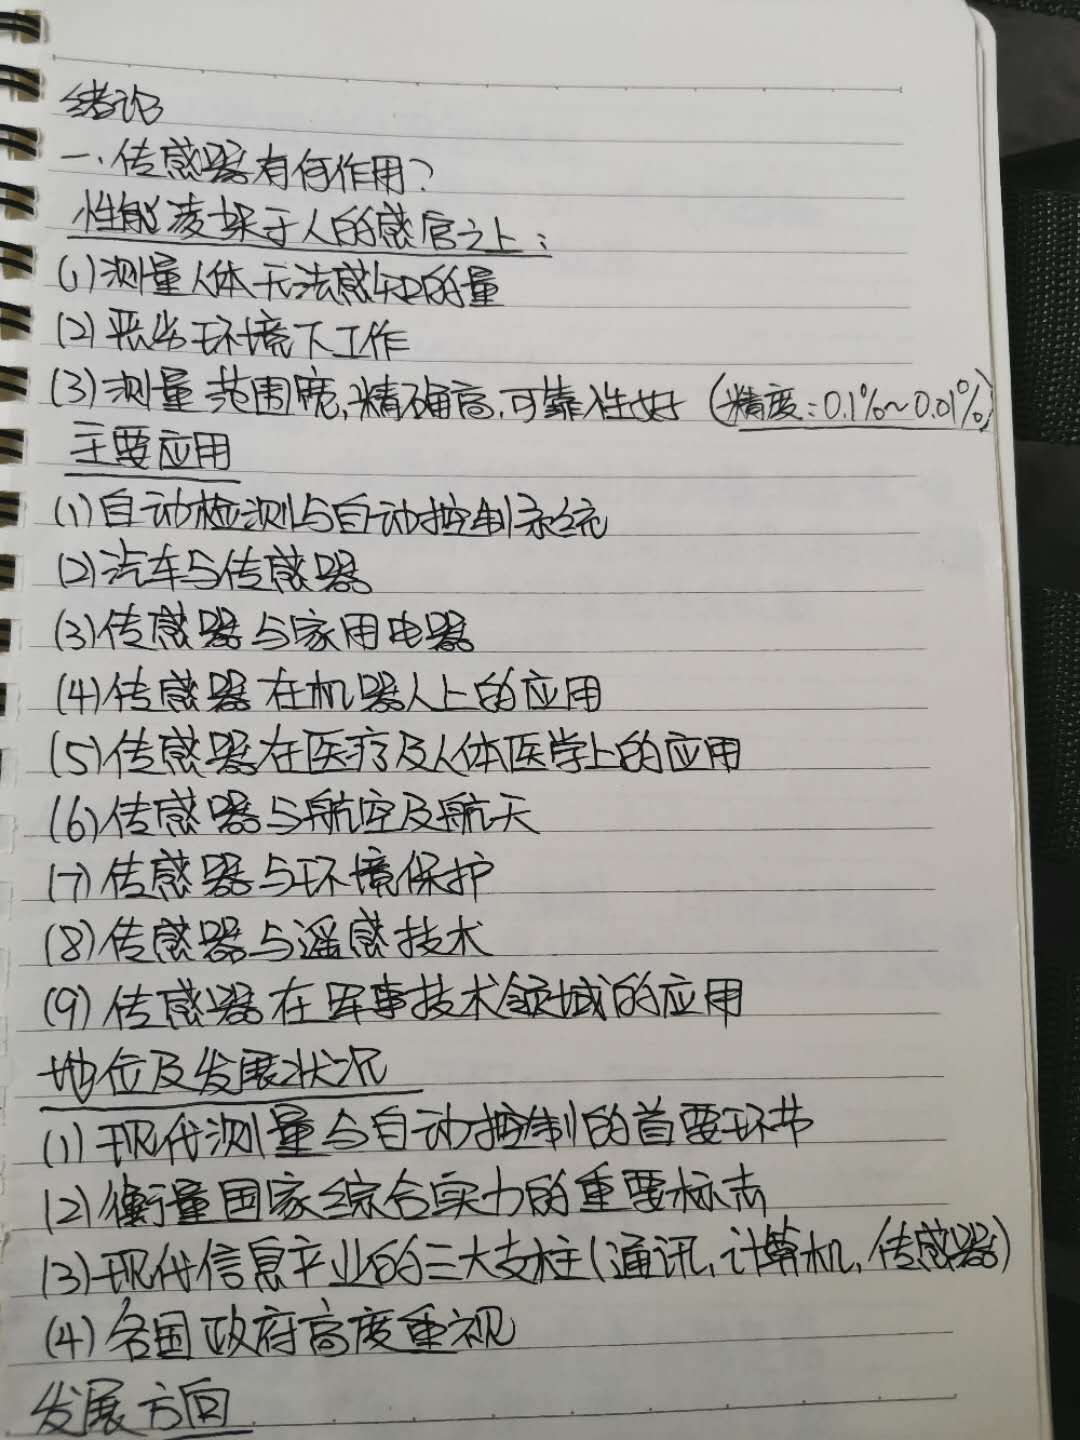 绪论
一.传感器有何作用?
性能凌驾于人的感官之上:
(1)测量人体无法感知的量
(2)恶劣环境下工作
(3)测量范围宽,精确高,可靠性好(精度:0.1%~0.01%)
主要应用
(1)自动检测与自动控制系统
(2)汽车与传感器
(3)传感器与家用电器
(4)传感器在机器人上的应用
(5)传感器在医疗及人体医学上的应用
(6)传感器与航空及航天
(7)传感器与环境保护
(8)传感器与遥感技术
(9)传感器在军事技术领域的应用
地位及发展状况
(1)现代测量与自动控制的首要环节
(2)衡量国家综合实力的重要标志
(3)现代信息产业的三大支柱(通讯,计算机,传感器)
(4)各国政府高度重视
发展方向